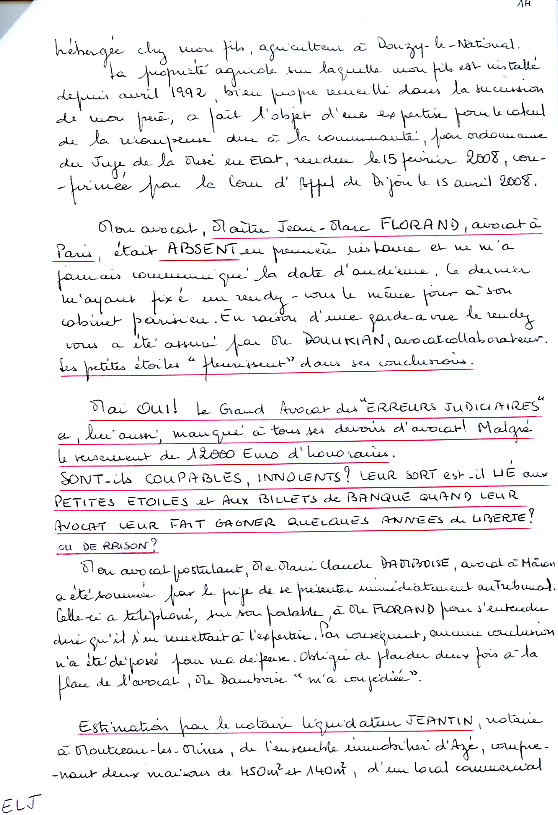 14
hébergée chez mon fils, agriculteur à Donzy-le-National.
La propriété agricole sur laquelle mon fils est installé
depuis avril 1992, bien propre recueilli dans la succession
de mon père, a fait l'objet d'une expertise pour le calcul
de la récompense due à la communauté, par ordonnance
du Juge de la Mise en Etat, rendue le 15 février 2008, con-
-firmée par la Cour d'Appel de Dijon le 15 avril 2008.
Mon avocat, Maître Jean-Marc FLORAND, avocat à
Paris, était ABSENT en première instance et ne m'a
jamais communiqué la date d'audience, ce dernier
m'ayant fixé un rendez-vous le même jour à son
cabinet parisien. En raison d'une garde a vue le rendez
vous a été assuré par Me DOUKIAN, avocat collaborateur.
Les petites étoiles "fleurissent" dans ses conclusions.
Mai OUI! Le Grand Avocat des "ERREURS JUDICIAIRES"
a, lui aussi, manqué à tous ses devoirs d'avocat! Malgré
le versement de 12000 Euro d'honoraires.
SONT-ils COUPABLES, INNOCENTS? LEUR SORT est-il LIÉ aux
PETITES ETOILES et AUX BILLETS de BANQUE QUAND LEUR
AVOCAT LEUR FAIT GAGNER QUELQUES ANNEES de LIBERTE?
OU DE PRISON?
Mon avocat postulant, Me Marie Claude DAMBOISE, avocat à Mâcon
a été sommée par le juge de se présenter immédiatement au Tribunal.
Celle-ci a téléphoné, sur son portable, à Me FLORAND pour s'entendre
dire qu'il s'en remettait à l'expertise. Par conséquent, aucune conclusion
n'a été déposé pour ma défense. Obligée de plaider deux fois à la
place de l'avocat, Me Damboise "m'a congédiée".
Estimation par le notaire liquidateur JEANTIN, notaire
à Montceau-les-Mines, de l'ensemble immobilier d'Azé, compre-
-nant deux maisons de 450m² et 140m², d'un local commercial
ELJ